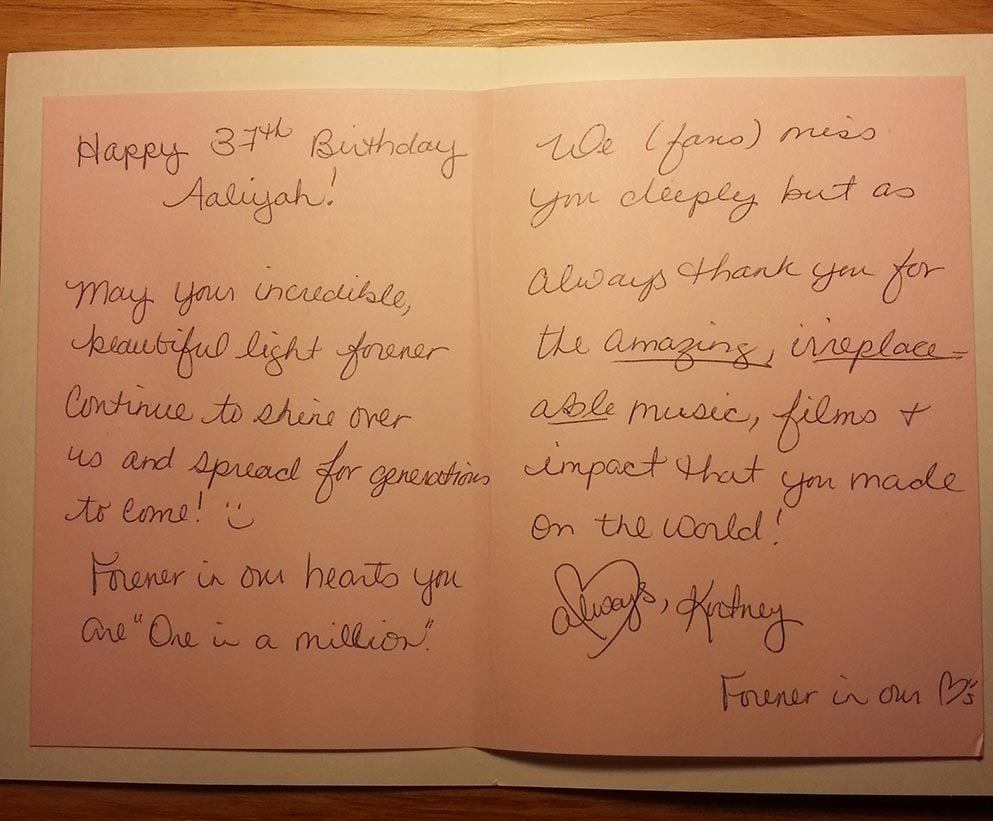 Happy 37th Birthday
Aaliyah!
May your incredible,
beautiful light forever
continue to shine over
us and spread for generations
to come! :)
Forever in our hearts you
are "One in a million".
We (fans) miss
you deeply but as
always thank you for
the amazing, irreplace-
able music, films +
impact that you made
on the world!
always, Kortney
Forever in our ♡'s